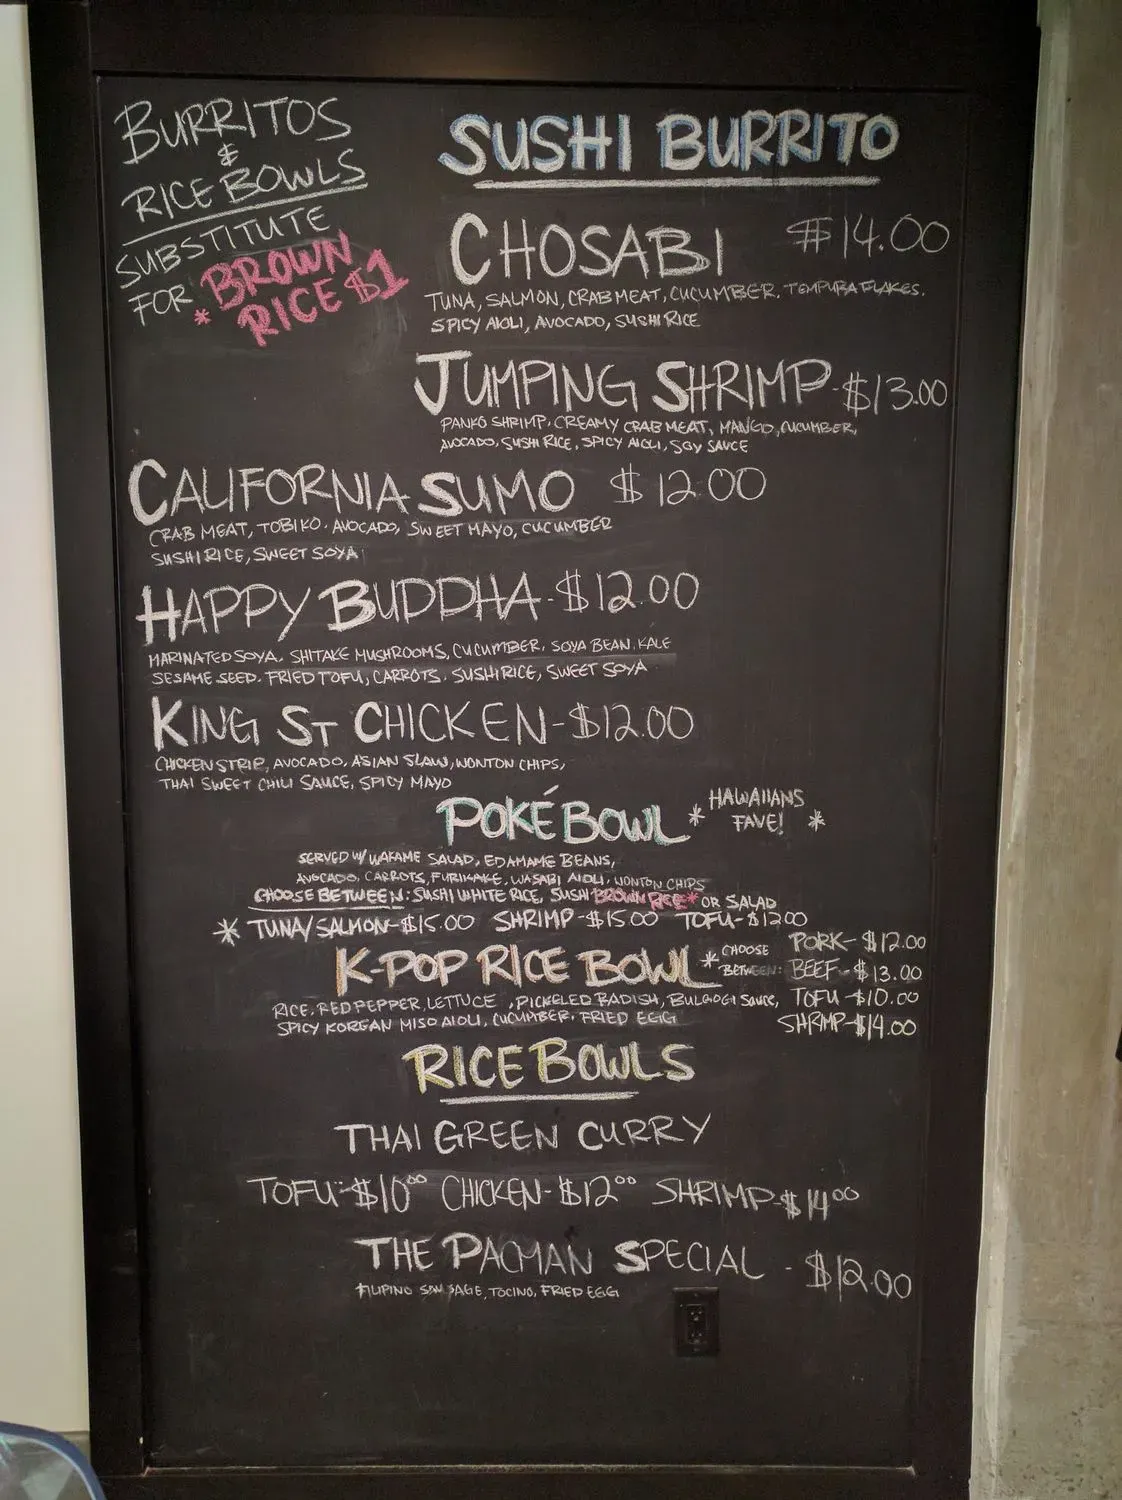 BURRITOS
&
RICE BOWLS
SUBSTITUTE
FOR * BROWN
RICE $1
SUSHI BURRITO
CHOSABI $14.00
TUNA, SALMON, CRAB MEAT, CUCUMBER, TEMPURA FLAKES,
SPICY AIOLI, AVOCADO, SUSHI RICE
JUMPING SHRIMP - $13.00
PANKO SHRIMP, CREAMY CRAB MEAT, MANGO, CUCUMBER,
AVOCADO, SUSHI RICE, SPICY AIOLI, SOY SAUCE
CALIFORNIA SUMO $12.00
CRAB MEAT, TOBIKO, AVOCADO, SWEET MAYO, CUCUMBER
SUSHI RICE, SWEET SOYA
HAPPY BUDDHA - $12.00
MARINATED SOYA, SHITAKE MUSHROOMS, CUCUMBER, SOYA BEAN, KALE
SESAME SEED, FRIED TOFU, CARROTS, SUSHI RICE, SWEET SOYA
KING ST CHICKEN - $12.00
CHICKEN STRIP, AVOCADO, ASIAN SLAW, WONTON CHIPS,
THAI SWEET CHILI SAUCE, SPICY MAYO
POKÉ BOWL * HAWAIIANS
FAVE! *
SERVED W/ WAKAME SALAD, EDAMAME BEANS,
AVOCADO, CARROTS, FURIKAKE, WASABI AIOLI, WONTON CHIPS
CHOOSE BETWEEN: SUSHI WHITE RICE, SUSHI BROWN RICE* OR SALAD
* TUNA/SALMON - $15.00 SHRIMP - $15.00 TOFU - $12.00
K-POP RICE BOWL * CHOOSE
BETWEEN:
PORK - $12.00
BEEF - $13.00
TOFU - $10.00
SHRIMP - $14.00
RICE, RED PEPPER, LETTUCE, PICKELED RADISH, BULGOGI SAUCE,
SPICY KOREAN MISO AIOLI, CUCUMBER, FRIED EGG
RICE BOWLS
THAI GREEN CURRY
TOFU - $10.00 CHICKEN - $12.00 SHRIMP - $14.00
THE PACMAN SPECIAL - $12.00
FILIPINO SAUSAGE, TOCINO, FRIED EGG